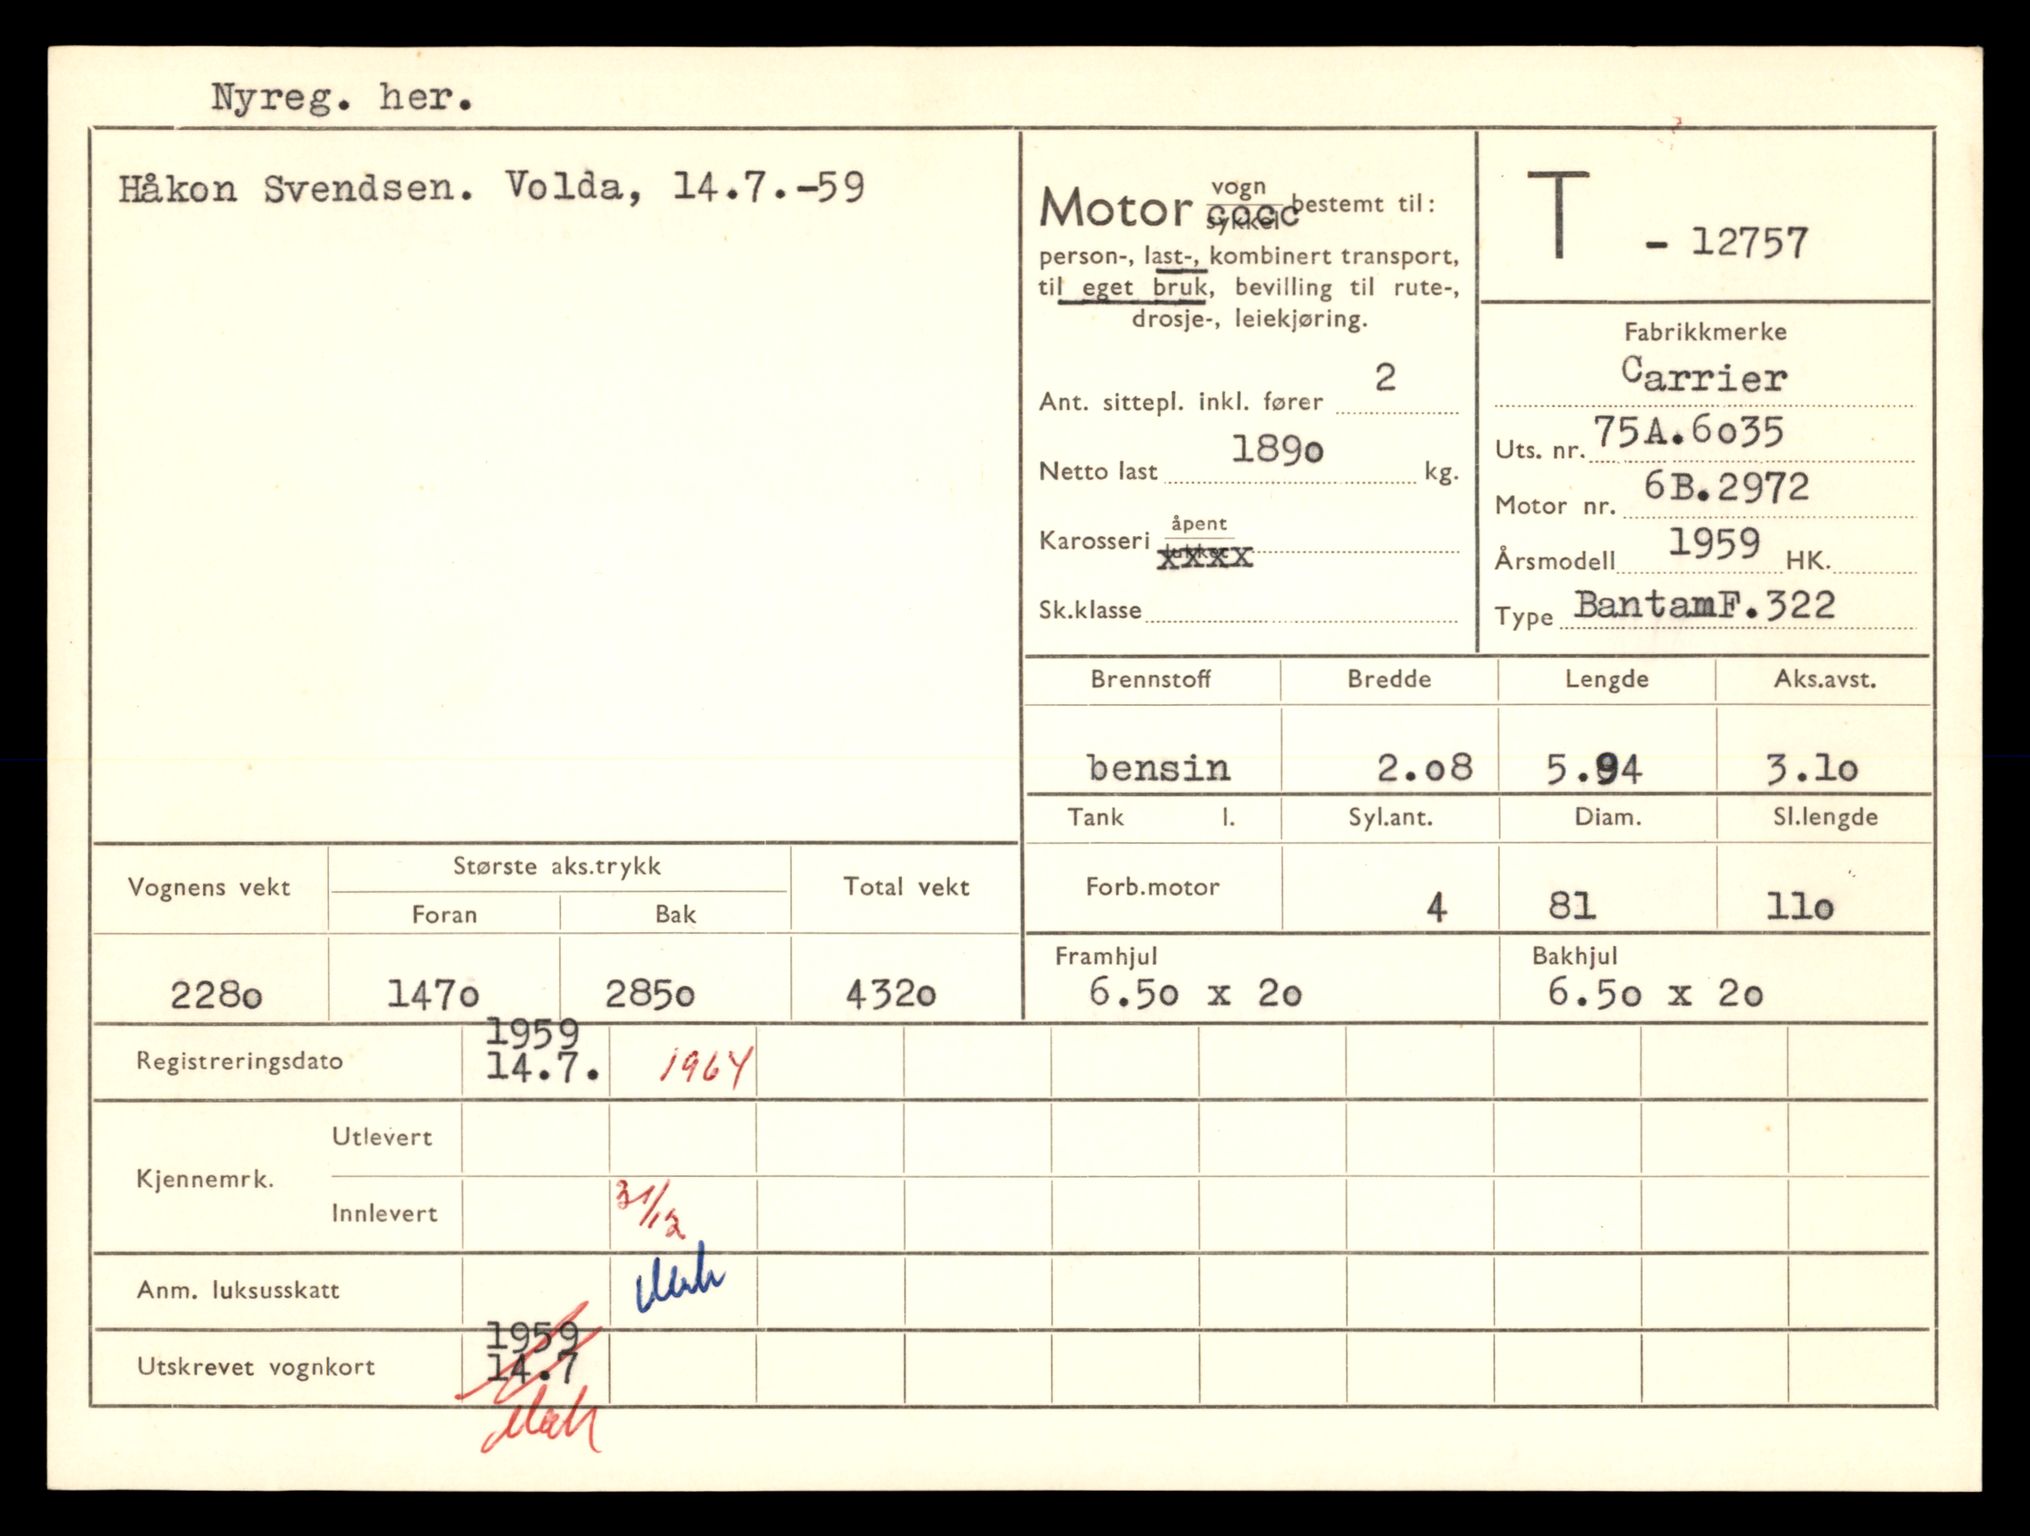 Nyreg. her.
Håkon Svendsen. Volda, 14.7.-59
Motor vogn sykkel bestemt til:
person-, last-, kombinert transport,
til eget bruk, bevilling til rute-,
drosje-, leiekjøring.
Ant. sittepl. inkl. fører 2
Netto last 1890 kg.
Karosseri åpent lukket
Sk.klasse
T - 12757
Fabrikkmerke
Carrier
Uts. nr. 75A.6035
Motor nr. 6B.2972
Årsmodell 1959 HK.
Type BantamF.322
Brennstoff Bredde Lengde Aks.avst.
bensin 2.08 5.94 3.10
Tank l. Syl.ant. Diam. Sl.lengde
Forb.motor 4 81 110
Framhjul Bakhjul
6.50 x 20 6.50 x 20
Vognens vekt Største aks.trykk Total vekt
Foran Bak
2280 1470 2850 4320
Registreringsdato 1959 14.7. 1964
Kjennemrk.
Utlevert
Innlevert 31/12
Anm. luksusskatt
Utskrevet vognkort 1959 14.7